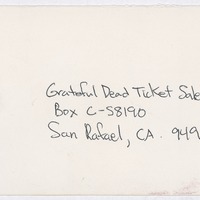 Grateful Dead Ticket Sale
Box C-S8190
San Rafael, CA. 949